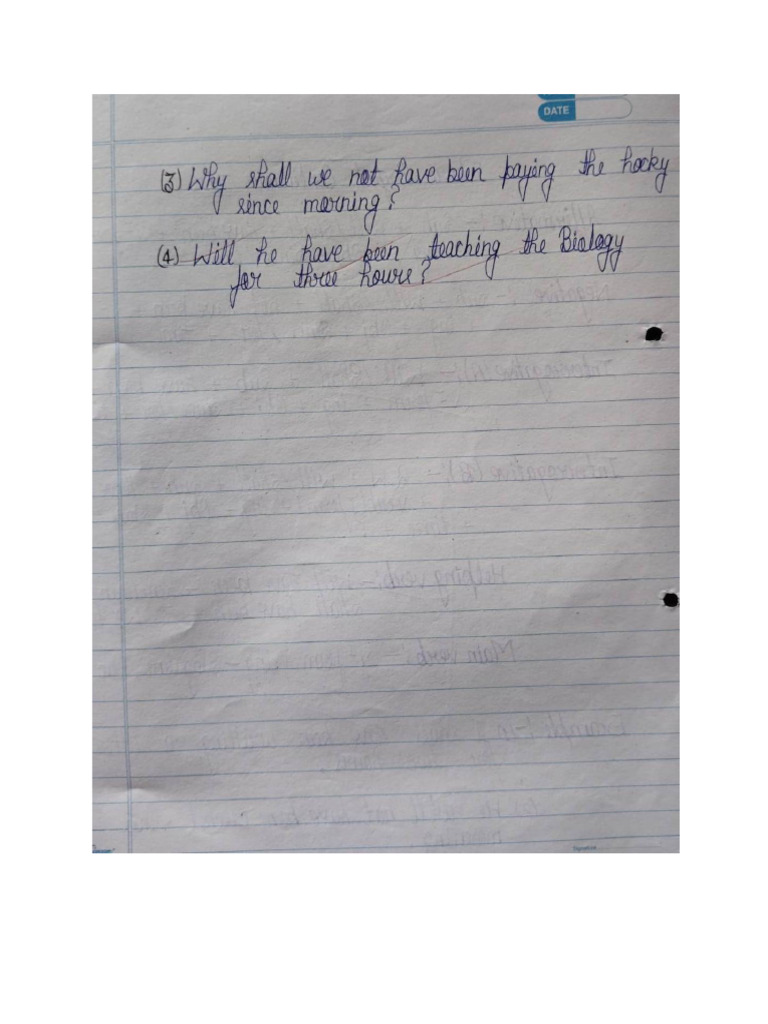 DATE
(3) Why shall we not have been paying the hocky
since morning?
(4) Will he have been teaching the Biology
for three hours?
Signature